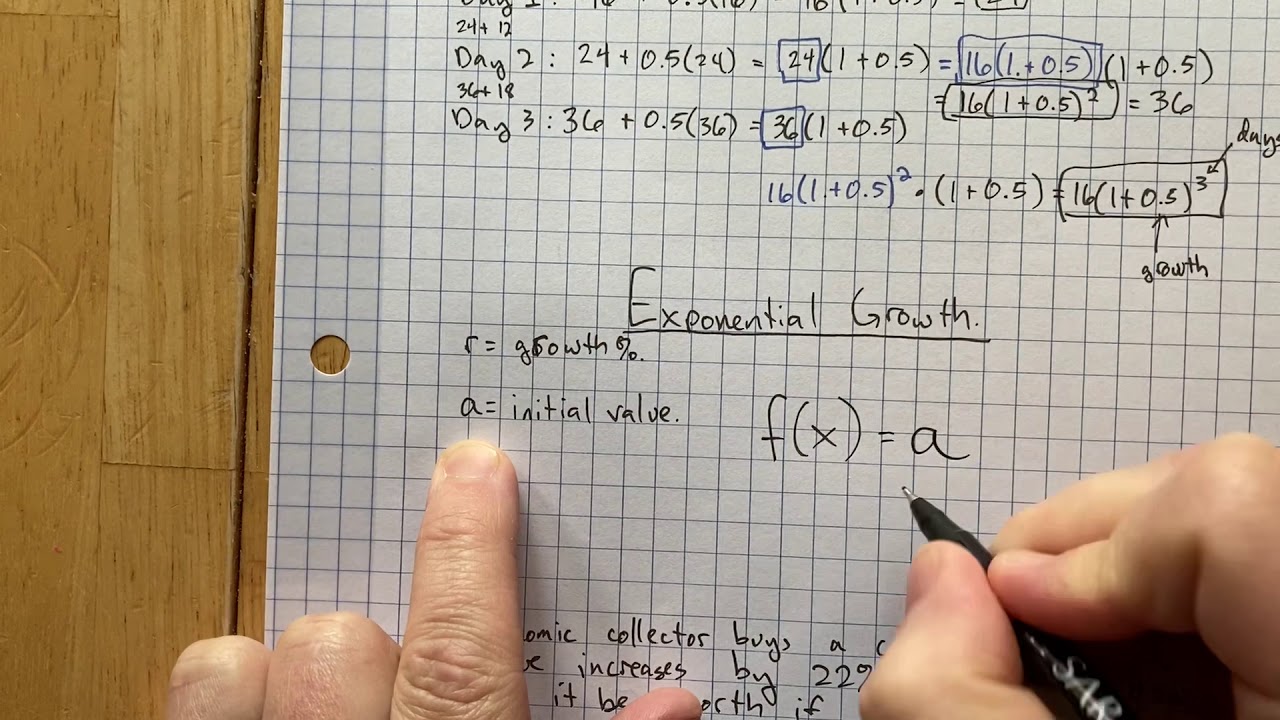 24+ 12
Day 2 : 24 + 0.5(24) = 24(1 + 0.5) = 16(1 + 0.5)(1 + 0.5)
36+18
= 16(1+0.5)² = 36
Day 3 : 36 + 0.5(36) = 36(1 + 0.5)
days
16(1+0.5)² · (1+0.5) = 16(1+0.5)³
growth
Exponential Growth.
r = growth %.
a = initial value.
f(x) = a
collector buys a
increases by 22%
it be if
SAR